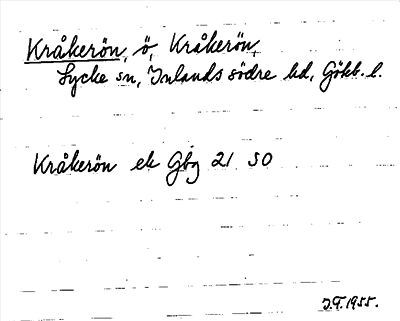 Kråkerön, ö, Kråkerön,
Lycke sn, Inlands södre hd, Gökb. l.
Kråkerön ek Gbg 21 SO
J.T. 1955.